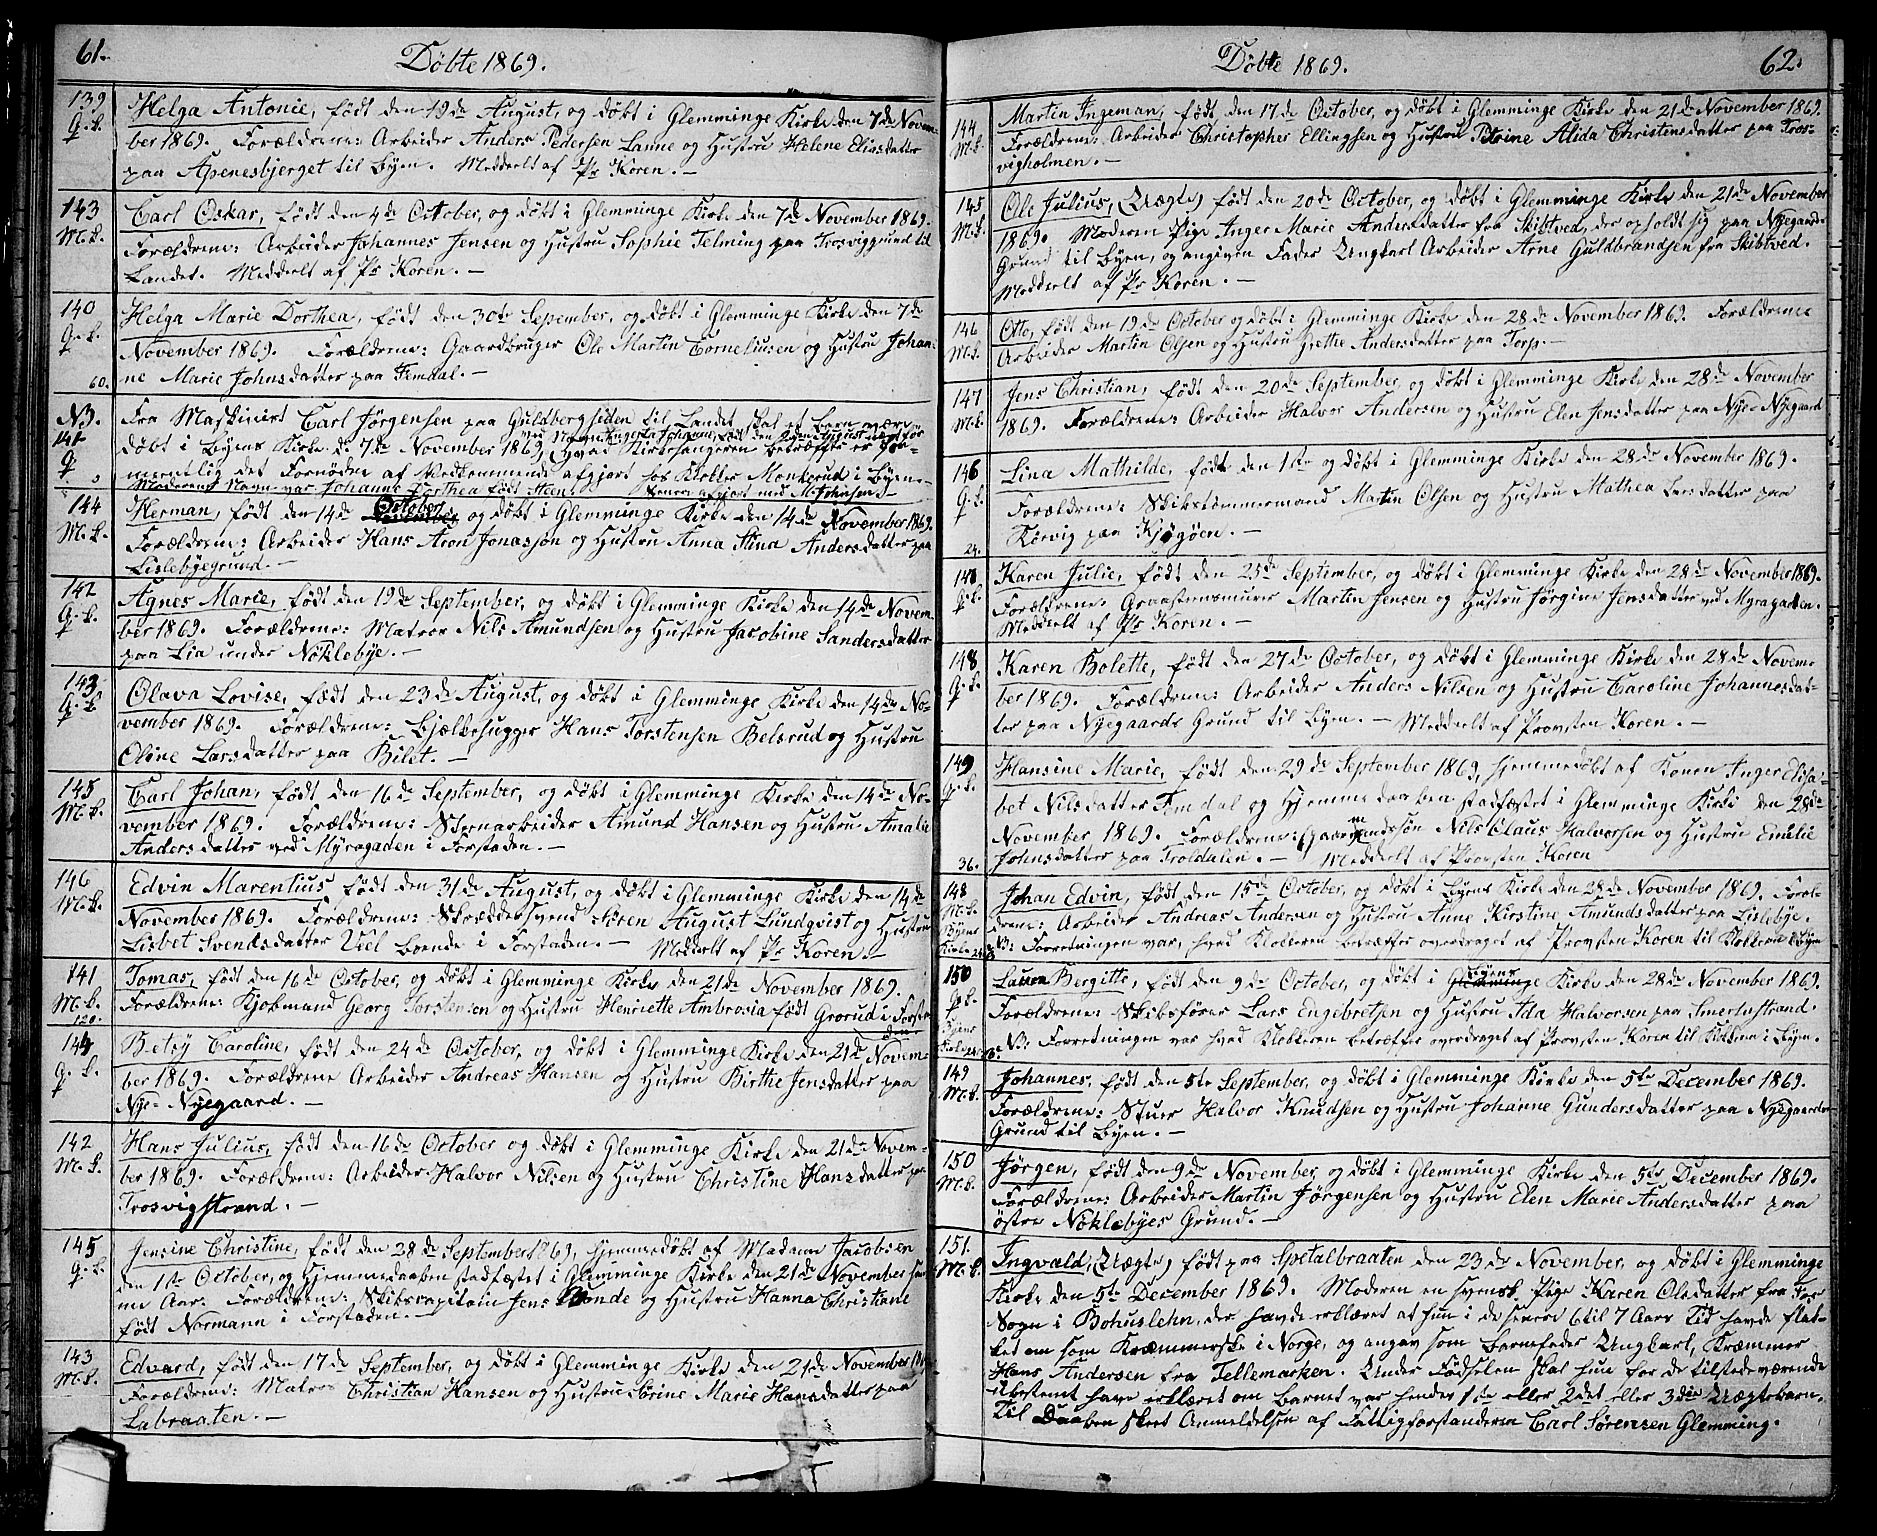 61.
Döbte 1869.
139
Q. L.
Helga Antonie, født den 19de August, og døbt i Glemminge Kirke den 7de Novem-
ber 1869. Forældrene: Arbeider Anders Pedersen Lanne og Hustru Helene Eliasdatter
paa Apenesbjerget til Byen. Meddelt af Pr Koren. —
143
M. L.
Carl Oskar, født den 4de October, og døbt i Glemminge Kirke den 7de November 1869.
Forældrene: Arbeider Johannes Jensen og Hustru Sophie Telming paa Trosviggrund til
Landet. Meddelt af Pr Koren. —
140
Q. L.
60.
Helga Marie Dorthea, født den 30te September, og døbt i Glemminge Kirke den 7de
November 1869. Forældrene: Gaardbruger Ole Martin Corneliusen og Hustru Johan-
ne Marie Johnsdatter paa Femdal. —
NB.
141
Q
Fra Maskinist Carl Jørgensen paa Guldbergsiden til Landet skal et Barn være
døbt i Byens Kirke d. 7de November 1869, hvad Kirkesangeren betræffer er for-
mentlig det Fornødne af Vedkommende afgjort hos Klokker Monkerud i Byen. —
Moderens Navn var Johanne Dorthea født Steen.
144
M. L.
Herman, født den 14de October og døbt i Glemminge Kirke den 14de November 1869.
Forældrene: Arbeider Hans Aron Jonasson og Hustru Anna Stina Andersdatter paa
Lislebyegrund. —
142
Q. L.
Agnes Marie, født den 19de September, og døbt i Glemminge Kirke den 14de Novem-
ber 1869. Forældrene: Matros Nils Amundsen og Hustru Jacobine Sandersdatter
paa Lia under Nöklebye. —
143
Q. L
Olava Lovise, født den 23de August, og døbt i Glemminge Kirke den 14de No-
vember 1869. Forældrene: Bjelkehugger Hans Torstensen Belsrud og Hustru
Oline Larsdatter paa Bilet. —
145
M. L.
Carl Johan, født den 16de September, og døbt i Glemminge Kirke den 14de No-
vember 1869. Forældrene: Stenarbeider Amund Hansen og Hustru Amalie
Andersdatter ved Myragaden i Forstaden. —
146
M. L.
Edvin Marentius, født den 31de August, og døbt i Glemminge Kirke den 14de
November 1869. Forældrene: Skrædersvend Sören August Lundqvist og Hustru
Lisbet Svendsdatter Viel boende i Forstaden. — Meddelt af Pr Koren. —
141
M. L.
120.
Tomas, født den 16de October, og døbt i Glemminge Kirke den 21de November 1869.
Forældrene: Kjøbmand Georg Torstensen og Hustru Henriette Ambrosia født Grorud i Forsta-
den
144
Q. L.
Betsy Caroline, født den 24de October, og døbt i Glemminge Kirke den 21de Novem-
ber 1869. Forældrene Arbeider Andreas Hansen og Hustru Birthe Jensdatter paa
Nye-Nyegaard. —
142
M. L.
Hans Julius, født den 16de October og døbt i Glemminge Kirke den 21de Novem-
ber 1869. Forældrene: Arbeider Halvor Nilsen og Hustru Christine Hansdatter paa
Trosvigstrand. —
145
Q. L.
Jensine Christine, født den 28de September 1869, hjemmedøbt af Madam Jacobsen
den 1ste October, og Hjemmedaaben stadfæstet i Glemminge Kirke den 21de November sam-
me Aar. Forældrene: Skibscapitain Jens Bonde og Hustru Hanna Christiane
født Normann i Forstaden. —
143
M. L.
Edvard, født den 17de September, og døbt i Glemminge Kirke den 21de November 1869
Forældrene: Matros Christian Hansen og Hustru Sörine Marie Hansdatter paa
Labraaten. —
Döbte 1869.
62.
144
M. L.
Martin Ingeman, født den 17de October, og døbt i Glemminge Kirke den 21de November 1869.
Forældrene: Arbeider Christopher Ellingsen og Hustru Petrine Alida Christensdatter paa Tros-
vigholmen. —
145
M. L.
Ole Julius, (Uægte) født den 20de October, og døbt i Glemminge Kirke den 21de November
1869. Moderen Pige Inger Marie Andersdatter fra Skibtved, der opholdt sig paa Nyegaards
Grund til Byen, og angiven Fader Ungkarl Arbeider Arne Guldbrandsen fra Skibtved.
Meddelt af Pr Koren. —
146
M. L.
Otto, født den 19de October og døbt i Glemminge Kirke den 28de November 1869. Forældrene
Arbeider Martin Olsen og Hustru Grethe Andersdatter paa Torp. —
147
M. L.
Jens Christian, født den 20de September, og døbt i Glemminge Kirke den 28de November
1869. Forældrene: Arbeider Halvor Andersen og Hustru Elen Jensdatter paa Nye-Nyegaard
146
Q. L.
24.
Lina Mathilde, født den 1ste og døbt i Glemminge Kirke den 28de November 1869.
Forældrene: Skibstømmermand Martin Olsen og Hustru Mathea Larsdatter paa
Rörvig paa Kjøgøen. —
147
Q. L.
Karen Julie, født den 25de September, og døbt i Glemminge Kirke den 28de November 1869.
Forældrene: Graastensmurer Martin Jensen og Hustru Jørgine Jensdatter ved Myragaden.
Meddelt af Pr Koren. —
148
Q. L.
Karen Bolette, født den 27de October, og døbt i Glemminge Kirke den 28de Novem-
ber 1869. Forældrene: Arbeider Anders Nilsen og Hustru Caroline Johannesdat-
ter paa Nyegaards Grund til Byen. — Meddelt af Provsten Koren. —
149
Q. L.
36.
Hansine Marie, født den 29de September 1869, hjemmedøbt af Konen Inger Elisa-
bet Nilsdatter Femdal og Hjemmedaaben stadfæstet i Glemminge Kirke den 28de
November 1869. Forældrene: Gaardmandssøn Nils Claus Halvorsen og Hustru Emilie
Johnsdatter paa Troldalen. — Meddelt af Provsten Koren
148
M. L.
Byens
Kirke
Johan Edvin, født den 15de October, og døbt i Byens Kirke den 28de November 1869. Foræl-
drene: Arbeider Andreas Andersen og Hustru Anne Kirstine Amundsdatter paa Lislebye.
NB. Forretningen var, hvad Klokkeren betræffer overdraget af Provsten Koren til Klokkern i Byen
150
Q. L.
Byens
Kirke
Laura Bergitte, født den 9de October, og døbt i Byens Kirke den 28de November 1869.
Forældrene: Skibsfører Lars Engebretsen og Hustru Ida Halvorsen paa Smertustrand.
NB. Forretningen var hvad Klokkeren betræffer overdraget af Provsten Koren til Klokkern i Byen.
149
M. L.
Johannes, født den 5te September, og døbt i Glemminge Kirke den 5te December 1869.
Forældrene: Stuer Halvor Knudsen og Hustru Johanne Gundersdatter paa Nyegaards
Grund til Byen. —
150
M. L.
Jörgen, født den 9de November og døbt i Glemminge Kirke den 5te December 1869.
Forældrene: Arbeider Martin Jörgensen og Hustru Elen Marie Andersdatter paa
östre Nöklebyes Grund. —
151.
M. L.
Ingvald, (Uægte) født paa Spetalbraaten den 23de November, og døbt i Glemminge
Kirke den 5te December 1869. Moderen en svensk Pige Karen Olsdatter fra Fors
Sogn i Bohuslehn, der havde erklæret at hun i de senere 6 til 7 Aars Tid havde flak-
ket om som Kræmmerske i Norge, og angav som Barnefader Ungkarl, Kræmmer
Hans Andersen fra Tellemarken. Under Fødselen skal hun for de tilstedeværende
ubestemt have erklæret om Barnet var hendes 1ste eller 2det eller 3die Uægtebarn.
Til Daaben skeet Anmeldelsen af Fattigforstanderen Carl Sørensen Glemming.